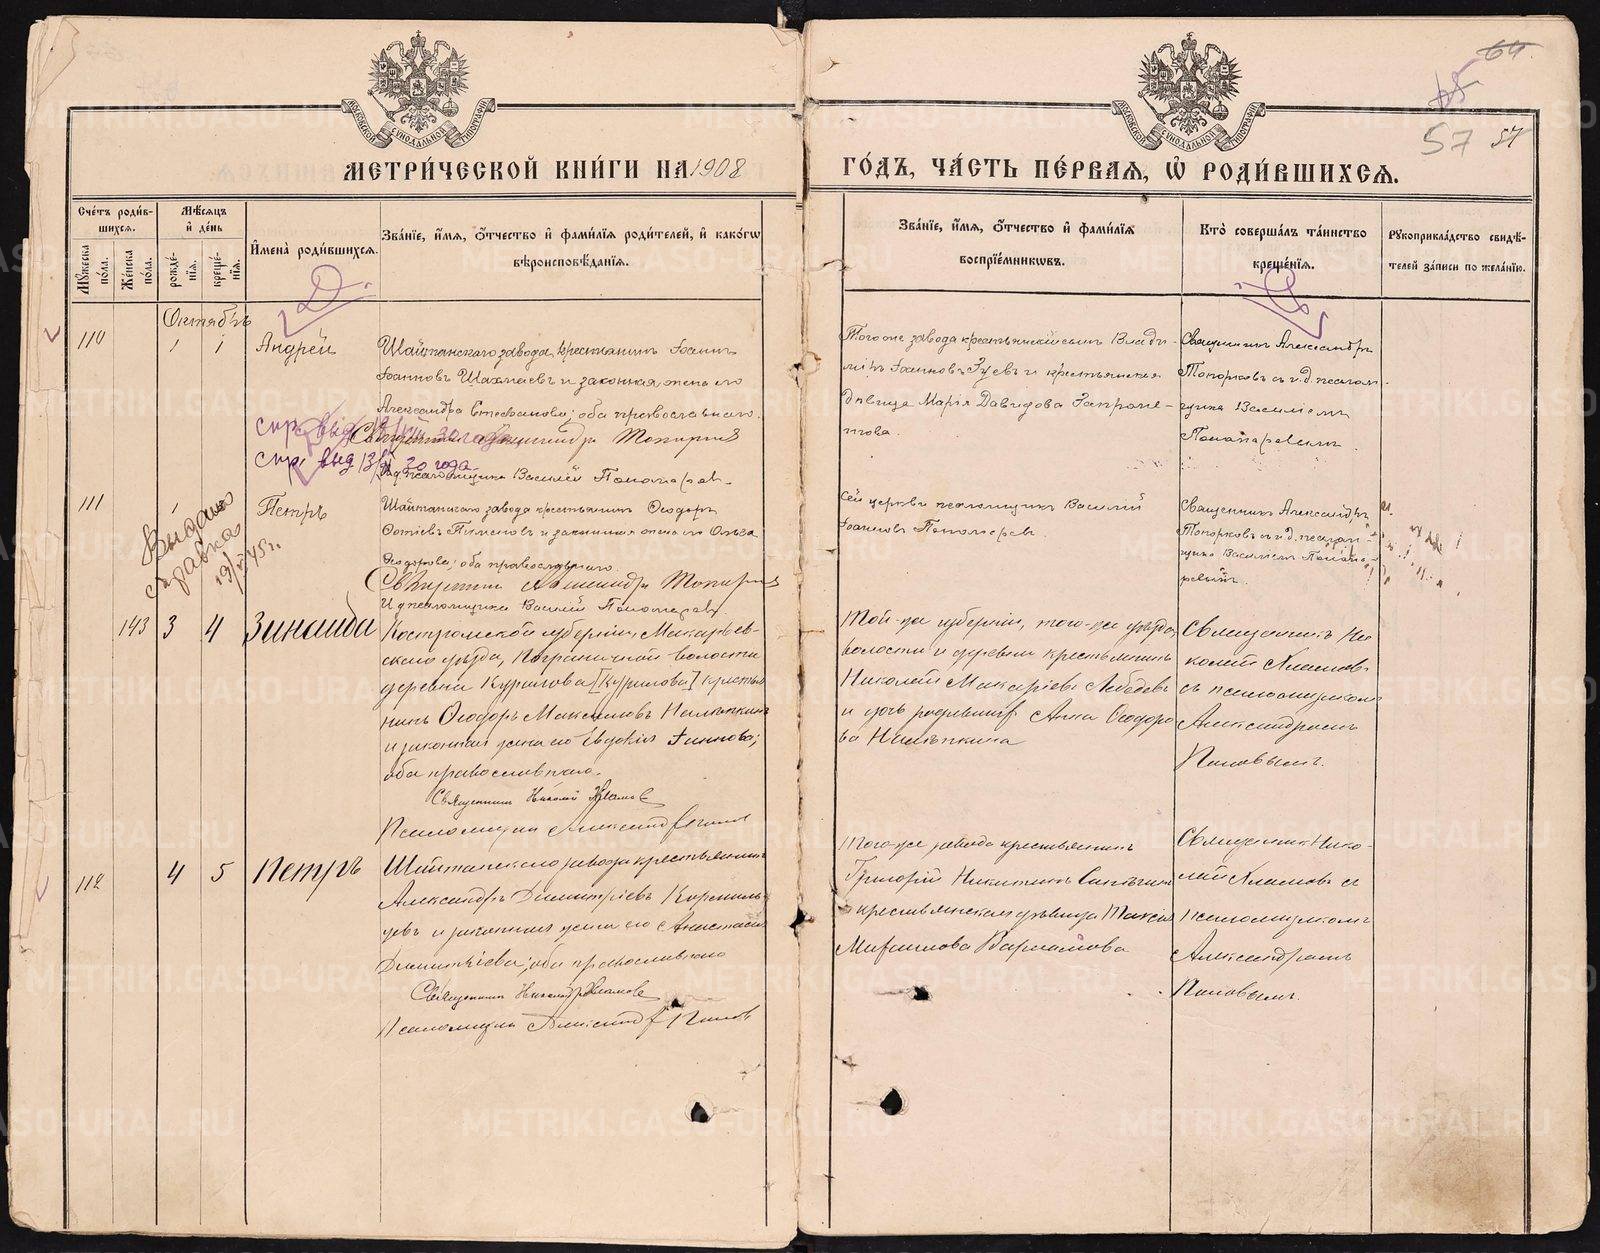 МЕТРИ́ЧЕСКОЙ КНИ́ГИ НА 1908
ГО́ДЪ, ЧА́СТЬ ПЕ́РВАЯ, Ѡ҆ РОДИ́ВШИХСѦ.
64
65
57 57
МОСКОВСКОЙ СѴНОДАЛЬНОЙ ТИПОГРАФІИ
МОСКОВСКОЙ СѴНОДАЛЬНОЙ ТИПОГРАФІИ
Сче́тъ роди́вшихсѧ.
Мꙋ́жеска по́ла.
Же́нска по́ла.
Мѣ́сѧцъ и҆ де́нь
рожде́нїѧ.
креще́нїѧ.
И҆мена̀ роди́вшихсѧ.
Зва́нїе, и҆́мѧ, о҆́тчество и҆ фами́лїѧ роди́телей, и҆ како́гѡ
вѣроисповѣ́данїѧ.
Зва́нїе, и҆́мѧ, о҆́тчество и҆ фами́лїѧ
воспрїе́мникѡвъ.
Кто̀ соверша́лъ та́инство
креще́нїѧ.
Рꙋкоприкла́дство свидѣ́-
телей за́писи по жела́нїю.
Октябрь
110
1 1
Андрей
Шайтанскаго завода крестьянинъ Іоаннъ
Іоанновъ Шахмаевъ и законная жена его
Александра Стефанова; оба православнаго.
Священникъ Александръ Топорковъ
И. д. псаломщика Василій Пономарев.
спр. выд 30 года
спр. выд 13/ 30 года
Того же завода крестьянскій сынъ Влади-
міръ Іоанновъ Гуевъ и крестьянская
дѣвица Марія Давидова
Священникъ Александръ
Топорковъ съ и. д. псалом-
щика Василіемъ
Пономаревымъ
111
1
Петръ
Выдана
справка
19/ 45 г.
Шайтанскаго завода крестьянинъ Ѳеодоръ
Пименовъ и законная жена его Ольга
Ѳеодорова; оба православнаго.
Священникъ Александръ Топорковъ
И. д. псаломщика Василій Пономаревъ
Сей церкви псаломщикъ Василій
Іоанновъ Пономаревъ
Священникъ Александръ
Топорковъ съ и. д. псалом-
щика Василіемъ Понома-
ревымъ.
143 3 4
Зинаида
Костромской губерніи, Макарьев-
скаго уѣзда, Пограничной волости
деревни Курилова [Курилова] крестья
нинъ Ѳеодоръ Максимовъ Налѣпкинъ
и законная жена его Евдокія Іоаннова;
оба православнаго.
Священникъ Николай Хламовъ
Псаломщикъ Александръ Поповъ
Той-же губерніи, того-же уѣзда,
волости и деревни крестьянинъ
Николай Макаріевъ Лебедевъ
и дочь родившей Анна Ѳеодоро
ва Налѣпкина
Священникъ Ни
колай Хламовъ
съ псаломщикомъ
Александромъ
Поповымъ.
112
4 5
Петръ
Шайтанскаго завода крестьянинъ
Александръ Димитріевъ Кормиль
цевъ и законная жена его Анастасія
Димитріева; оба православнаго
Священникъ Николай Хламовъ
Псаломщикъ Александръ Поповъ
Того-же завода крестьянинъ
Григорій Никитинъ
и крестьянская дѣвица Таисія
Михаилова Вараксина
Священникъ Нико-
лай Хламовъ съ
Псаломщикомъ
Александромъ
Поповымъ.
METRIKI.GASO-URAL.RU